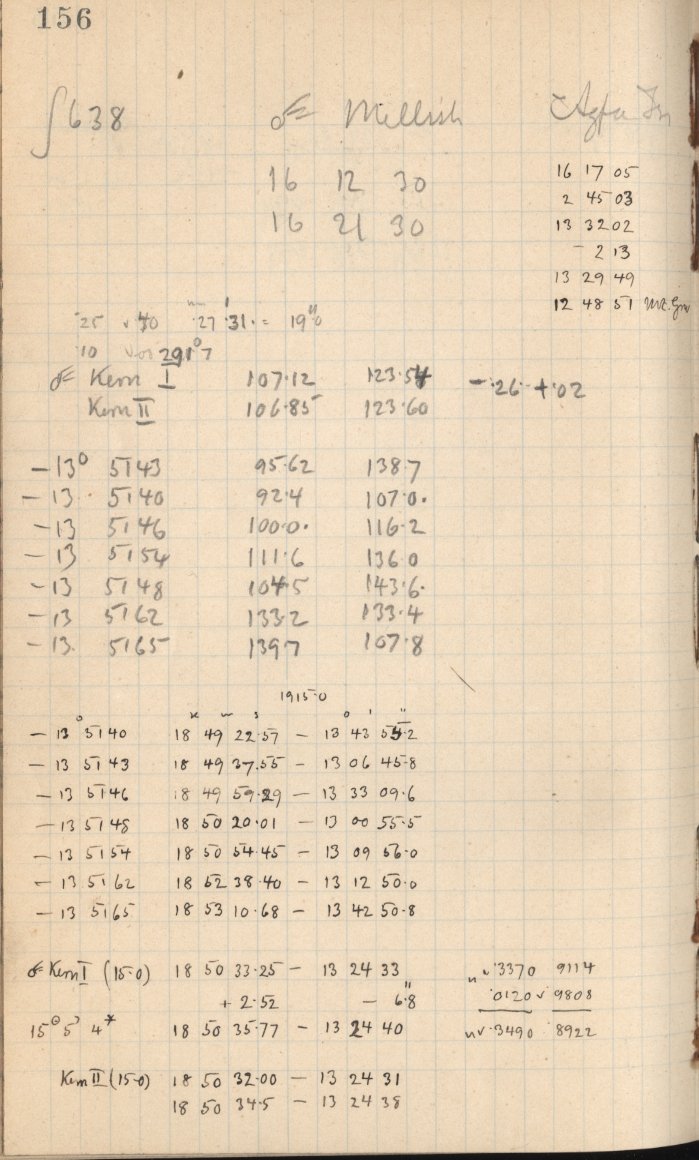 156
∫638 ☌ Mellish Agfa
16 12 30
16 21 30
16 17 05
2 45 03
13 32 02
- 2 13
13 29 49
12 48 51
25 v 40 27 31. = 19"0
10 291°7
☌ Kern I 107.12 123.54 -.26 +.02
Kern II 106.85 123.60
-13° 5143 95.62 138.7
-13 5140 92.4 107.0.
-13 5146 100.0. 116.2
-13 5154 111.6 136.0
-13 5148 104.5 143.6.
-13 5162 133.2 133.4
-13. 5165 139.7 107.8
1915.0
h m s ° ' "
-13° 5140 18 49 22.57 - 13 43 54.2
-13 5143 18 49 37.55 - 13 06 45.8
-13 5146 18 49 59.29 - 13 33 09.6
-13 5148 18 50 20.01 - 13 00 55.5
-13 5154 18 50 54.45 - 13 09 56.0
-13 5162 18 52 38.40 - 13 12 50.0
-13 5165 18 53 10.68 - 13 42 50.8
☌ Kern I (15.0) 18 50 33.25 - 13 24 33 nv .3370 9114
+ 2.52 - 6"8 .0120 v 9808
15° 5' 4* 18 50 35.77 - 13 24 40 nv .3490 8922
Kern II (15.0) 18 50 32.00 - 13 24 31
18 50 34.5 - 13 24 38